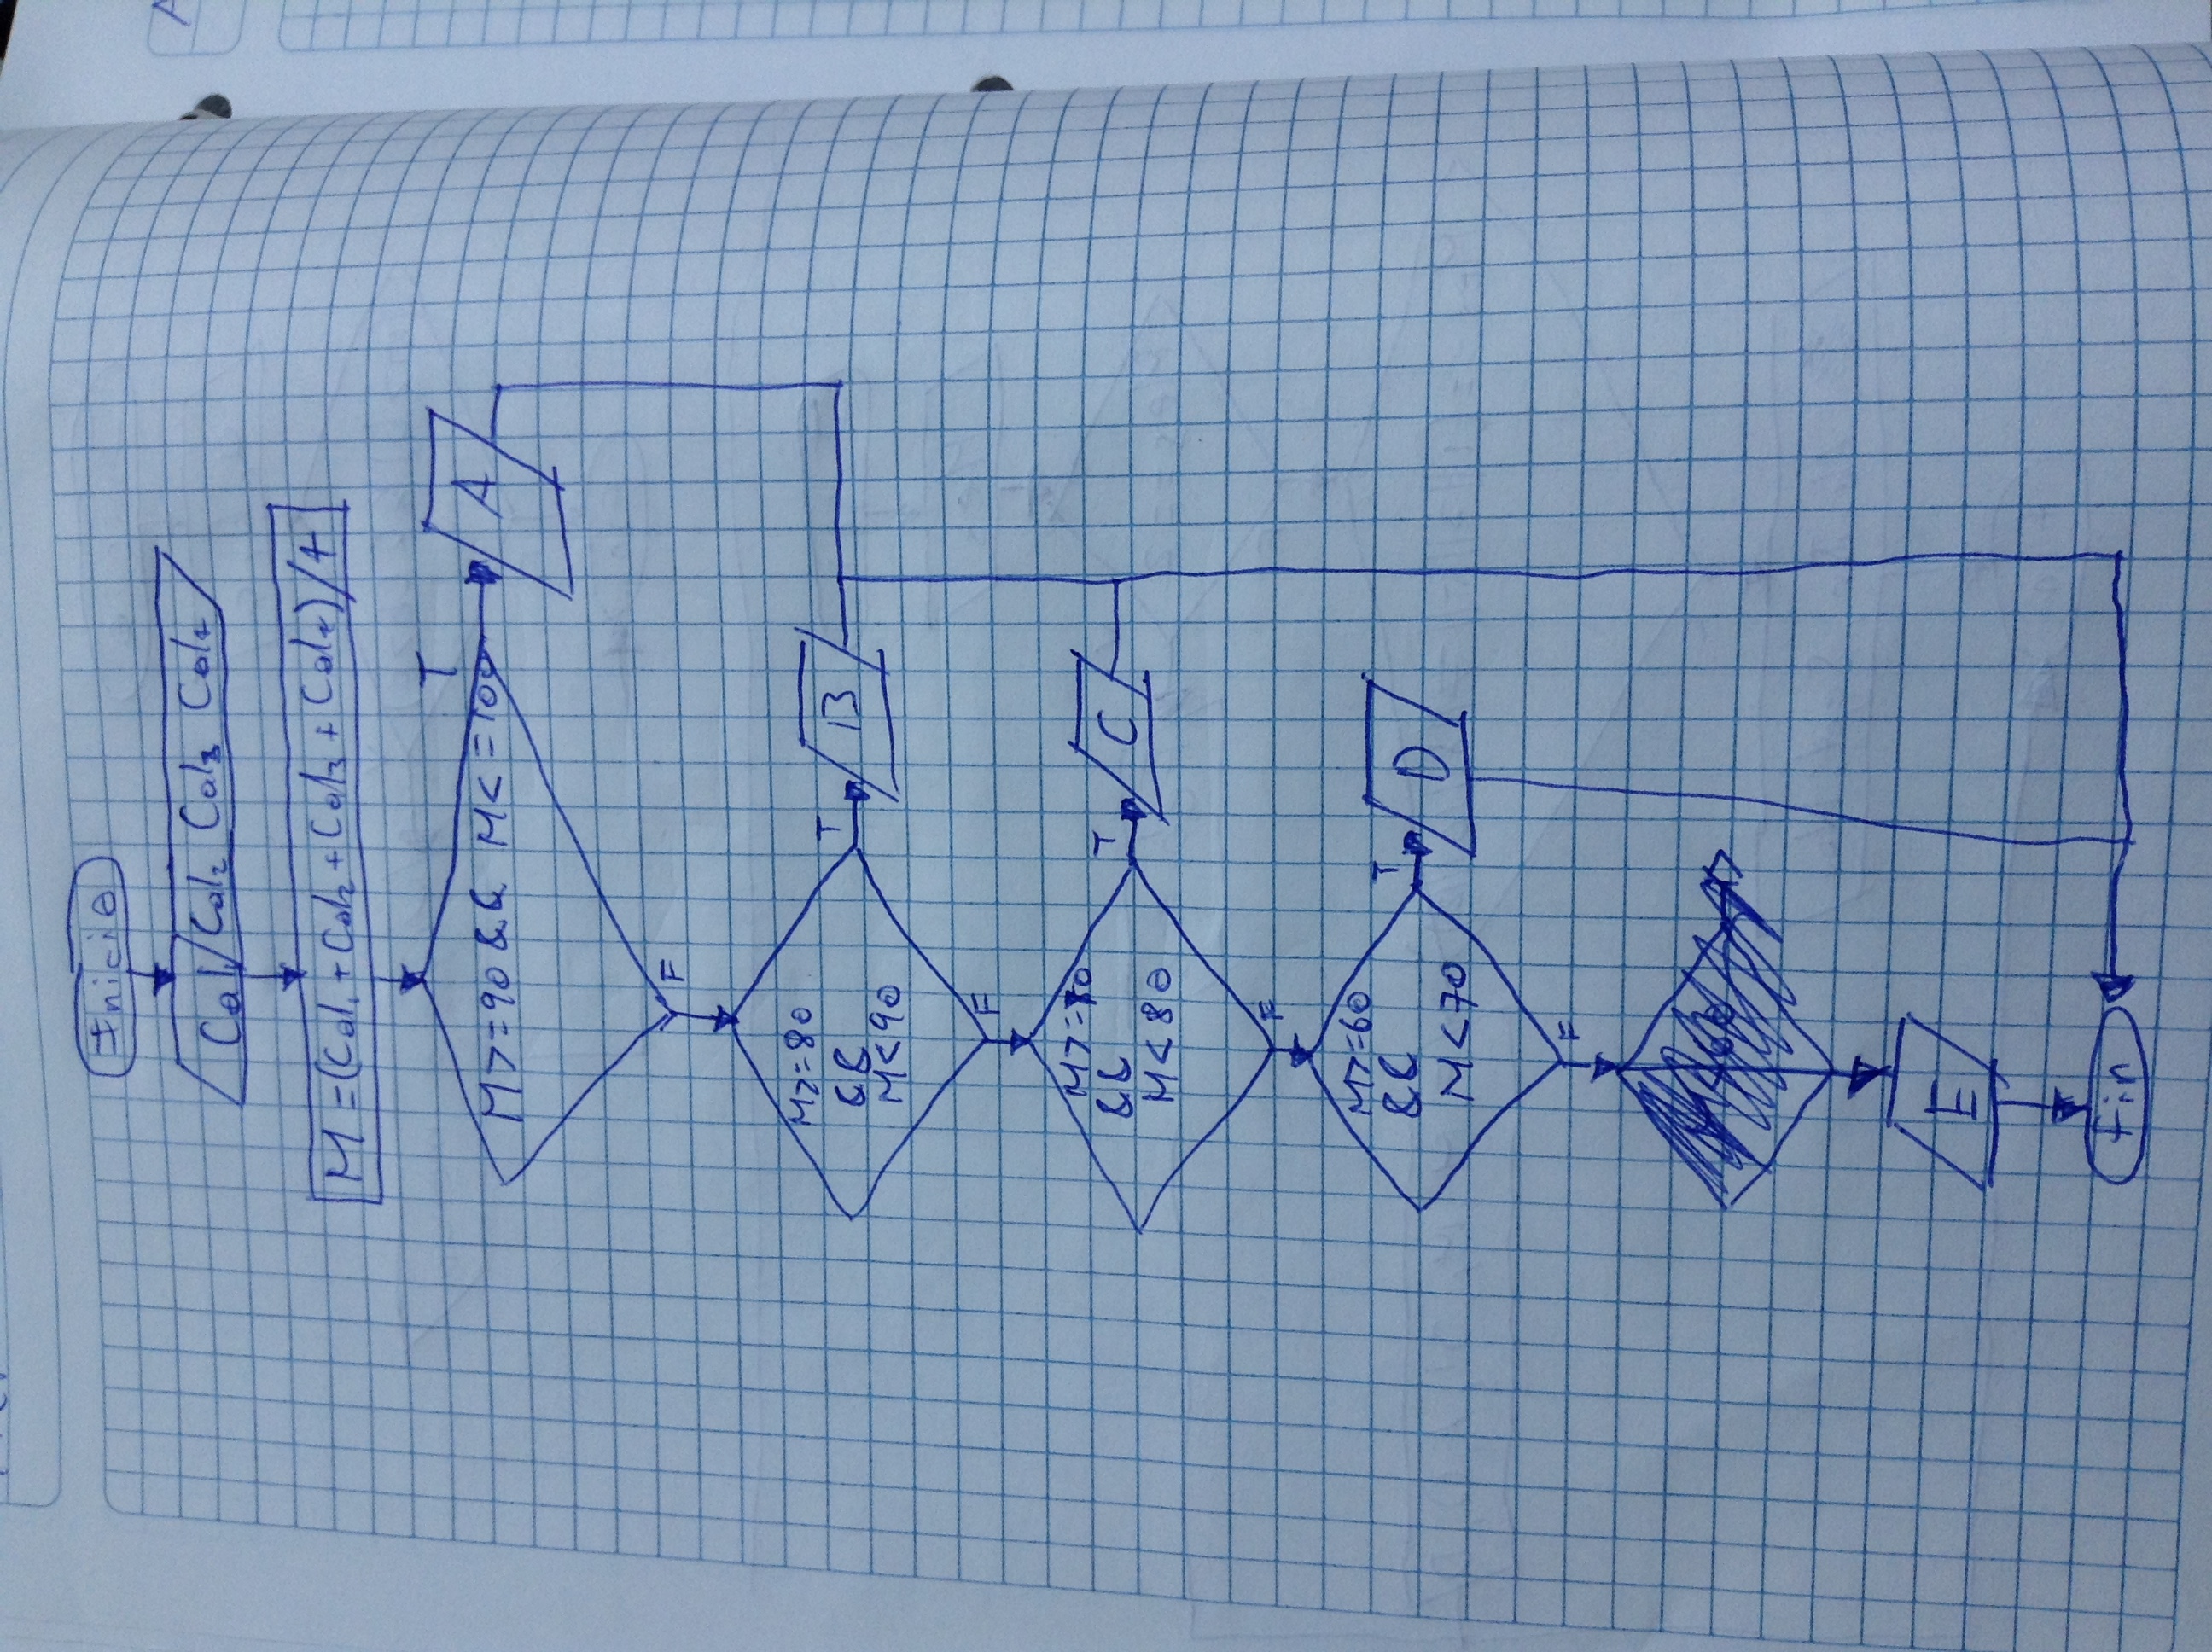 Inicio
Cal1 Cal2 Cal3 Cal4
M=(Cal1+Cal2+Cal3+Cal4)/4
M>=90 && M<=100
T
A
F
M>=80
&&
M<90
T
B
F
M>=70
&&
M<80
T
C
F
M>=60
&&
M<70
T
D
F
E
Fin